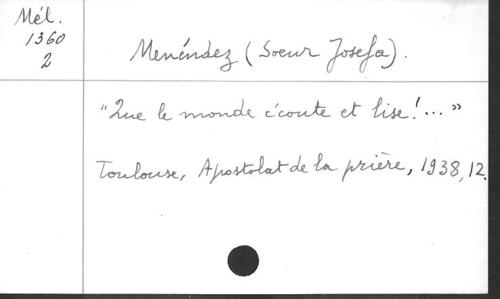 Mél.
1360
2
Menéndez (Soeur Josefa).
"Que le monde écoute et lise!..."
Toulouse, Apostolat de la prière, 1938, 12.